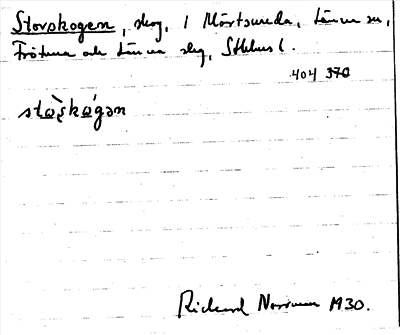 Storskogen, skog, i Mörtsunda, Länna sn,
Frötuna och Länna skg, Sthlms l.
404 370
Rickard Norrman 1930.